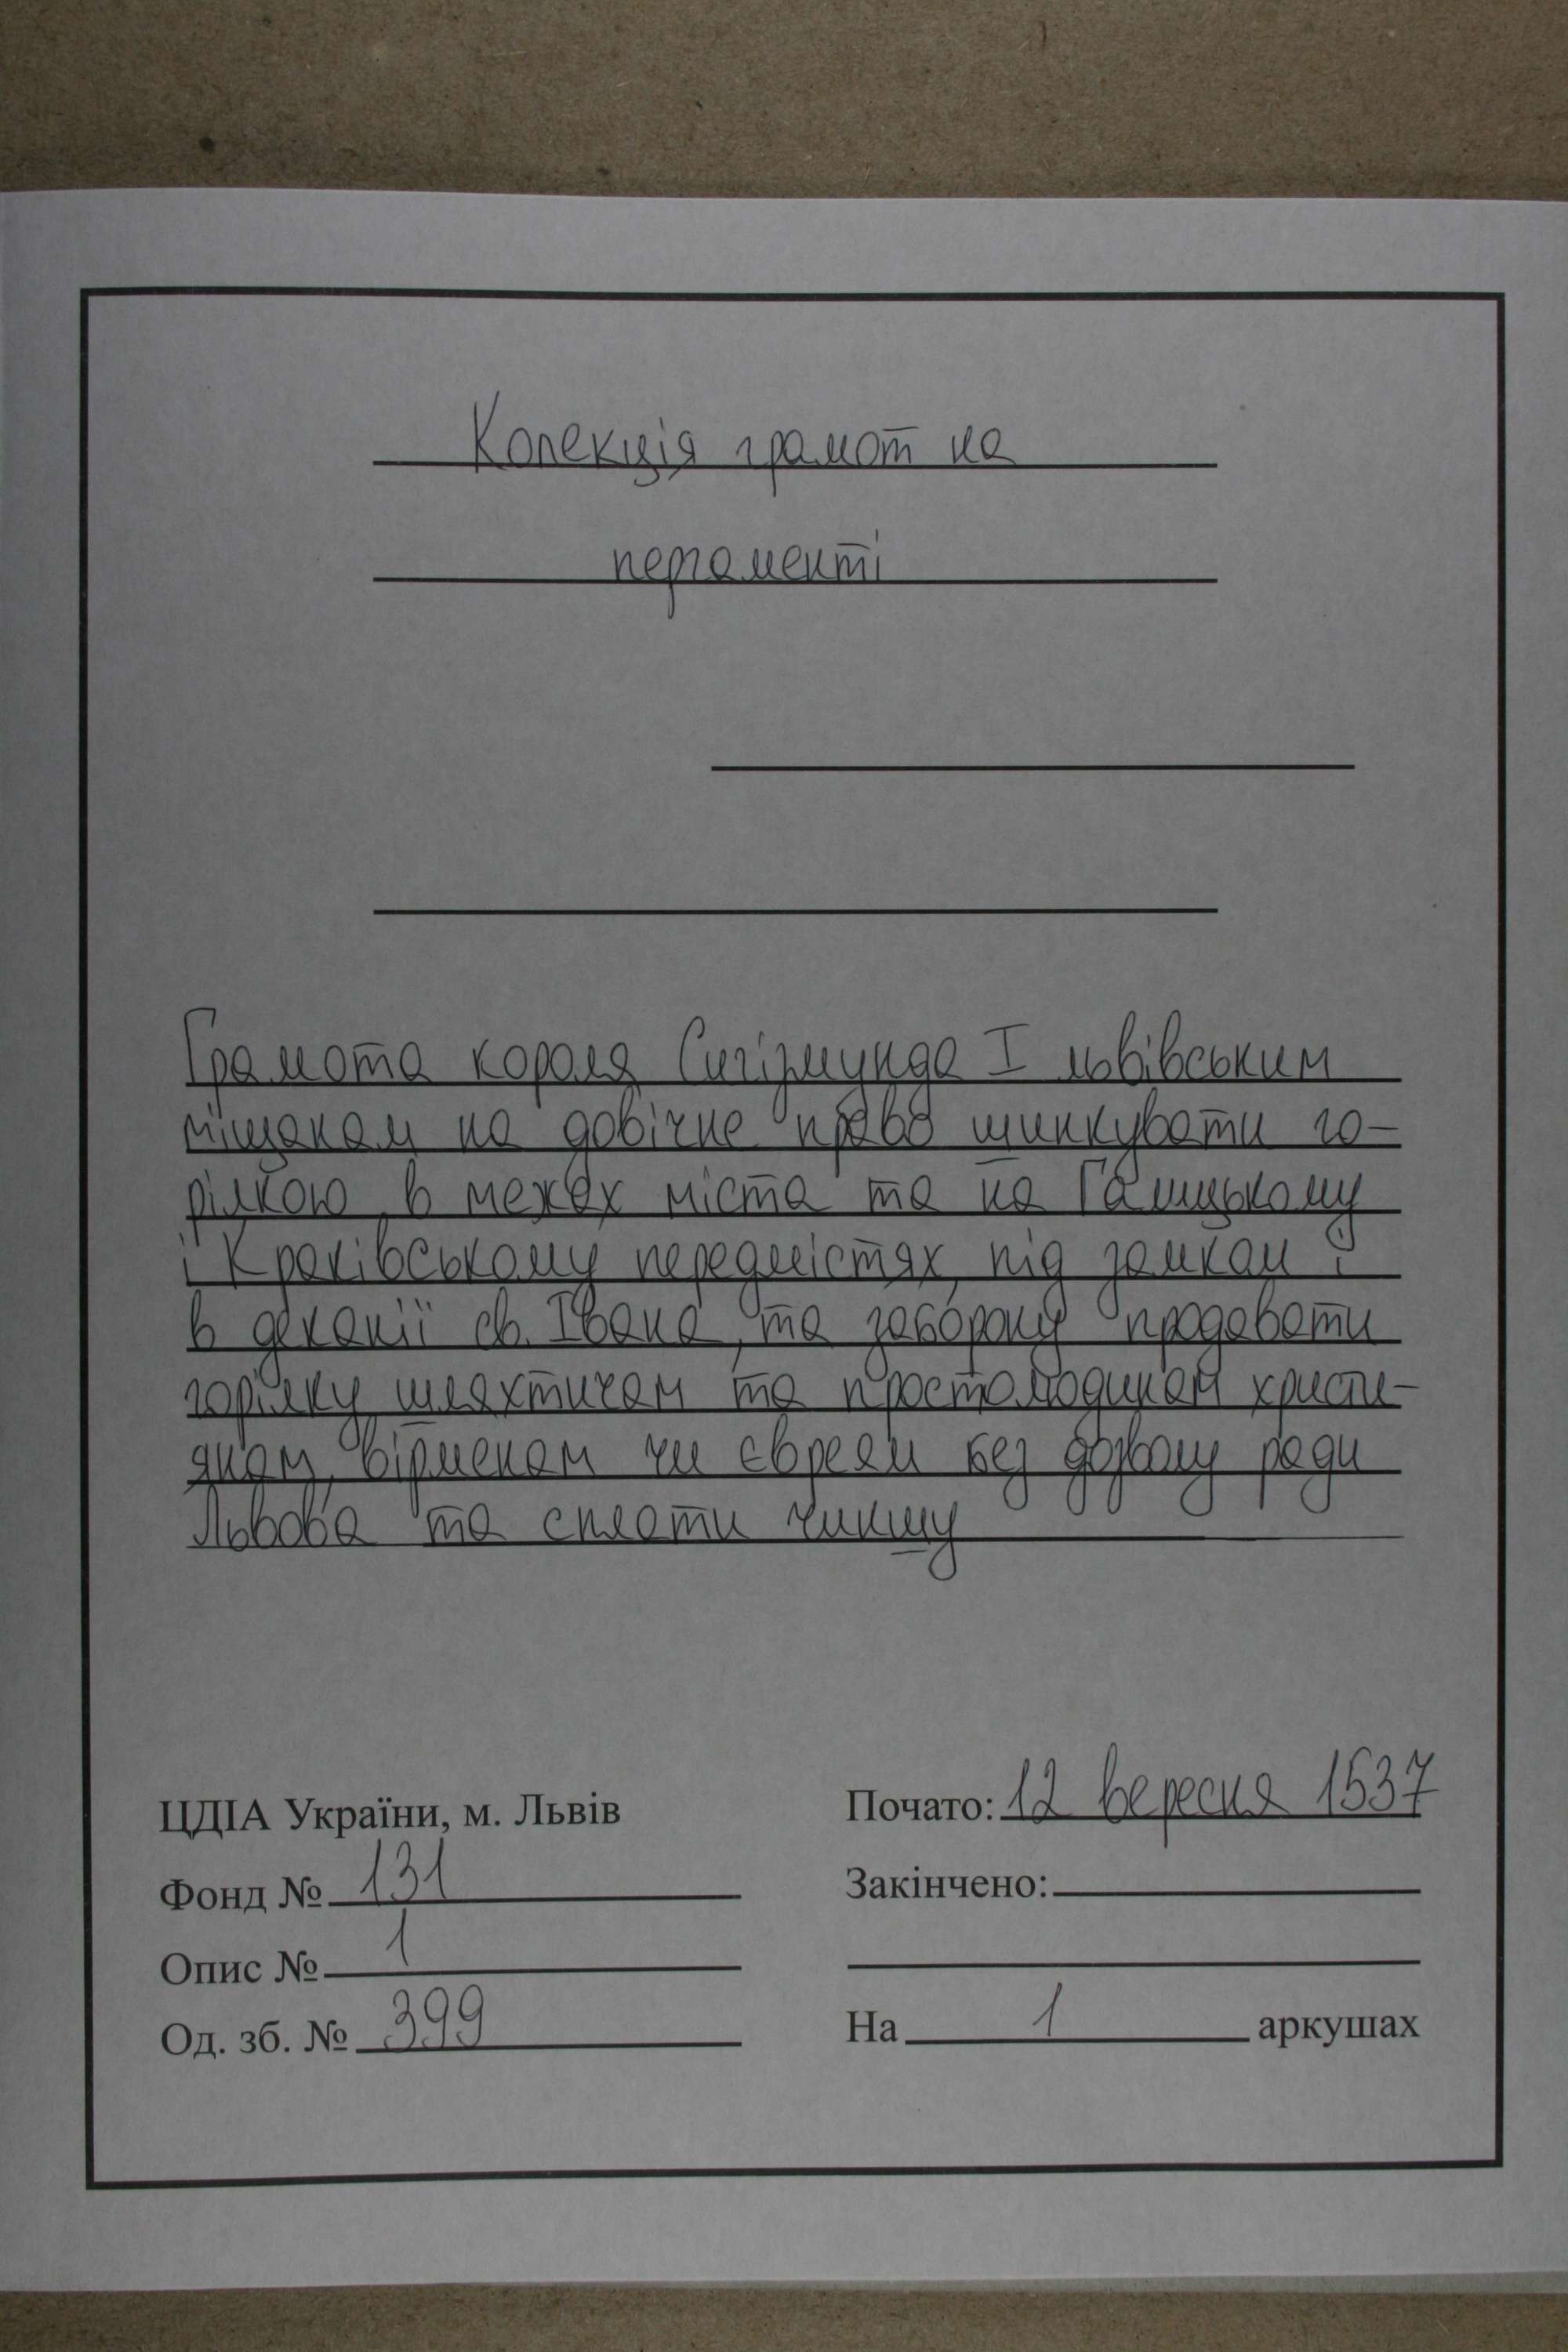 Колекція грамот на
пергаменті
Грамота короля Сигізмунда І львівським
міщанам на довічне право шинкувати го-
рілкою в межах міста та на Галицькому
і Краківському передмістях, під замком і
в деканії св. Івана, та заборону продавати
горілку шляхтичам та простолюдинам христи-
янам, вірменам чи євреям без дозволу ради
Львова та сплати чиншу
ЦДІА України, м. Львів
Почато: 12 вересня 1537
Фонд № 131
Закінчено:
Опис № 1
Од. зб. № 399
На 1 аркушах